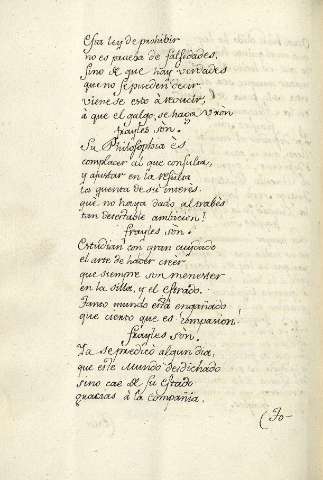 Esta ley de prohibir
no es prueba de falsidades,
sino de que hay verdades
que no se pueden decir
viene se esto à reducir,
à que el galgo, se haga
frayles son.
Su Philosophia ès
complacer al que consulta,
y ajustar en la resulta
la quenta de su interès.
què no haya dado al travès
tan detestable ambicion!
frayles son.
Estudian con gran cuydado
el arte de hacer creèr
que siempre son menester
en la silla, y el estrado.
Tanto mundo està engañado
que cierto que es compasion!
frayles son.
Ya se predicò algun dia,
que este Mundo desdichado
sino cae de su estado
gracias à la Compañia.